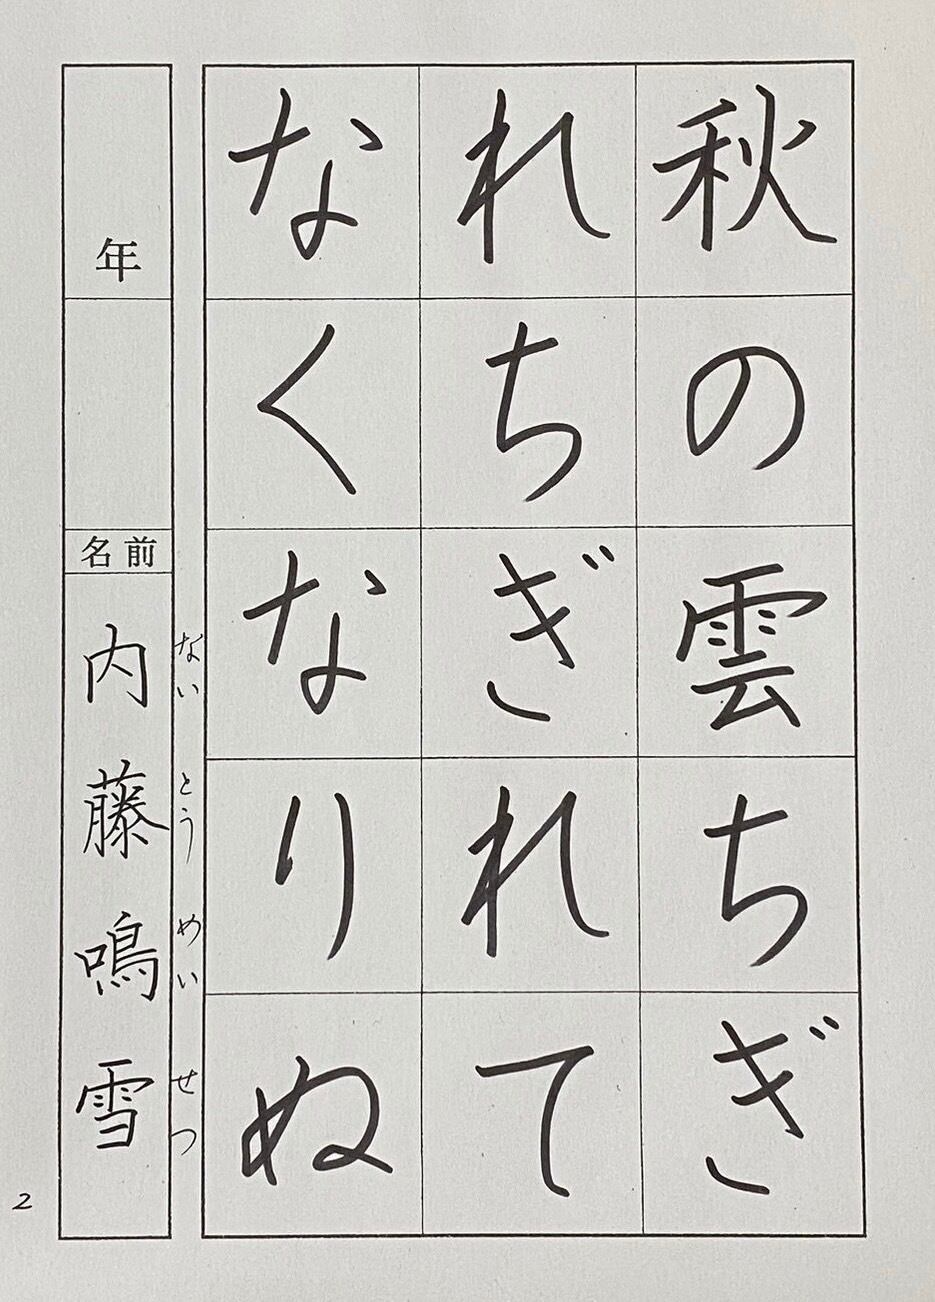 秋の雲ちぎ
れちぎれて
なくなりぬ
年
名前
内藤鳴雪
ないとうめいせつ
2